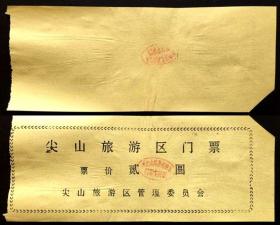 尖山旅游区门票
票价 贰 圆
尖山旅游区管理委员会